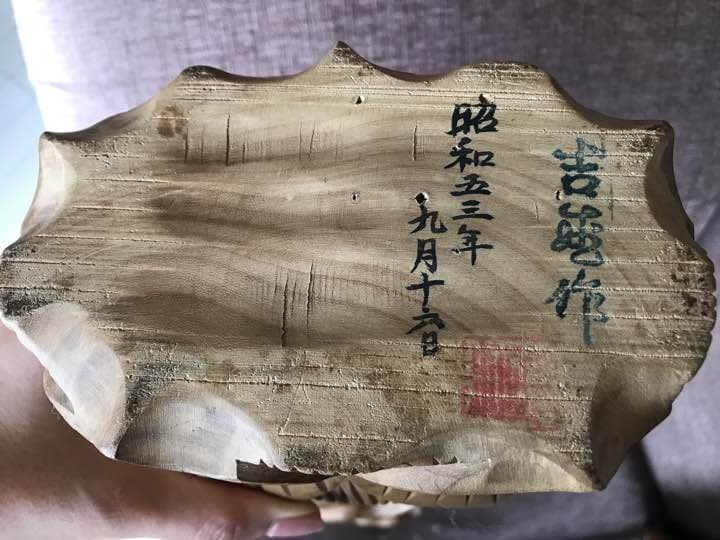 吉 作
昭和五三年
九月十六日